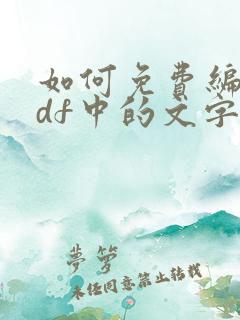 如何免费编
df中的文字
夢箩
未经同意禁止转载